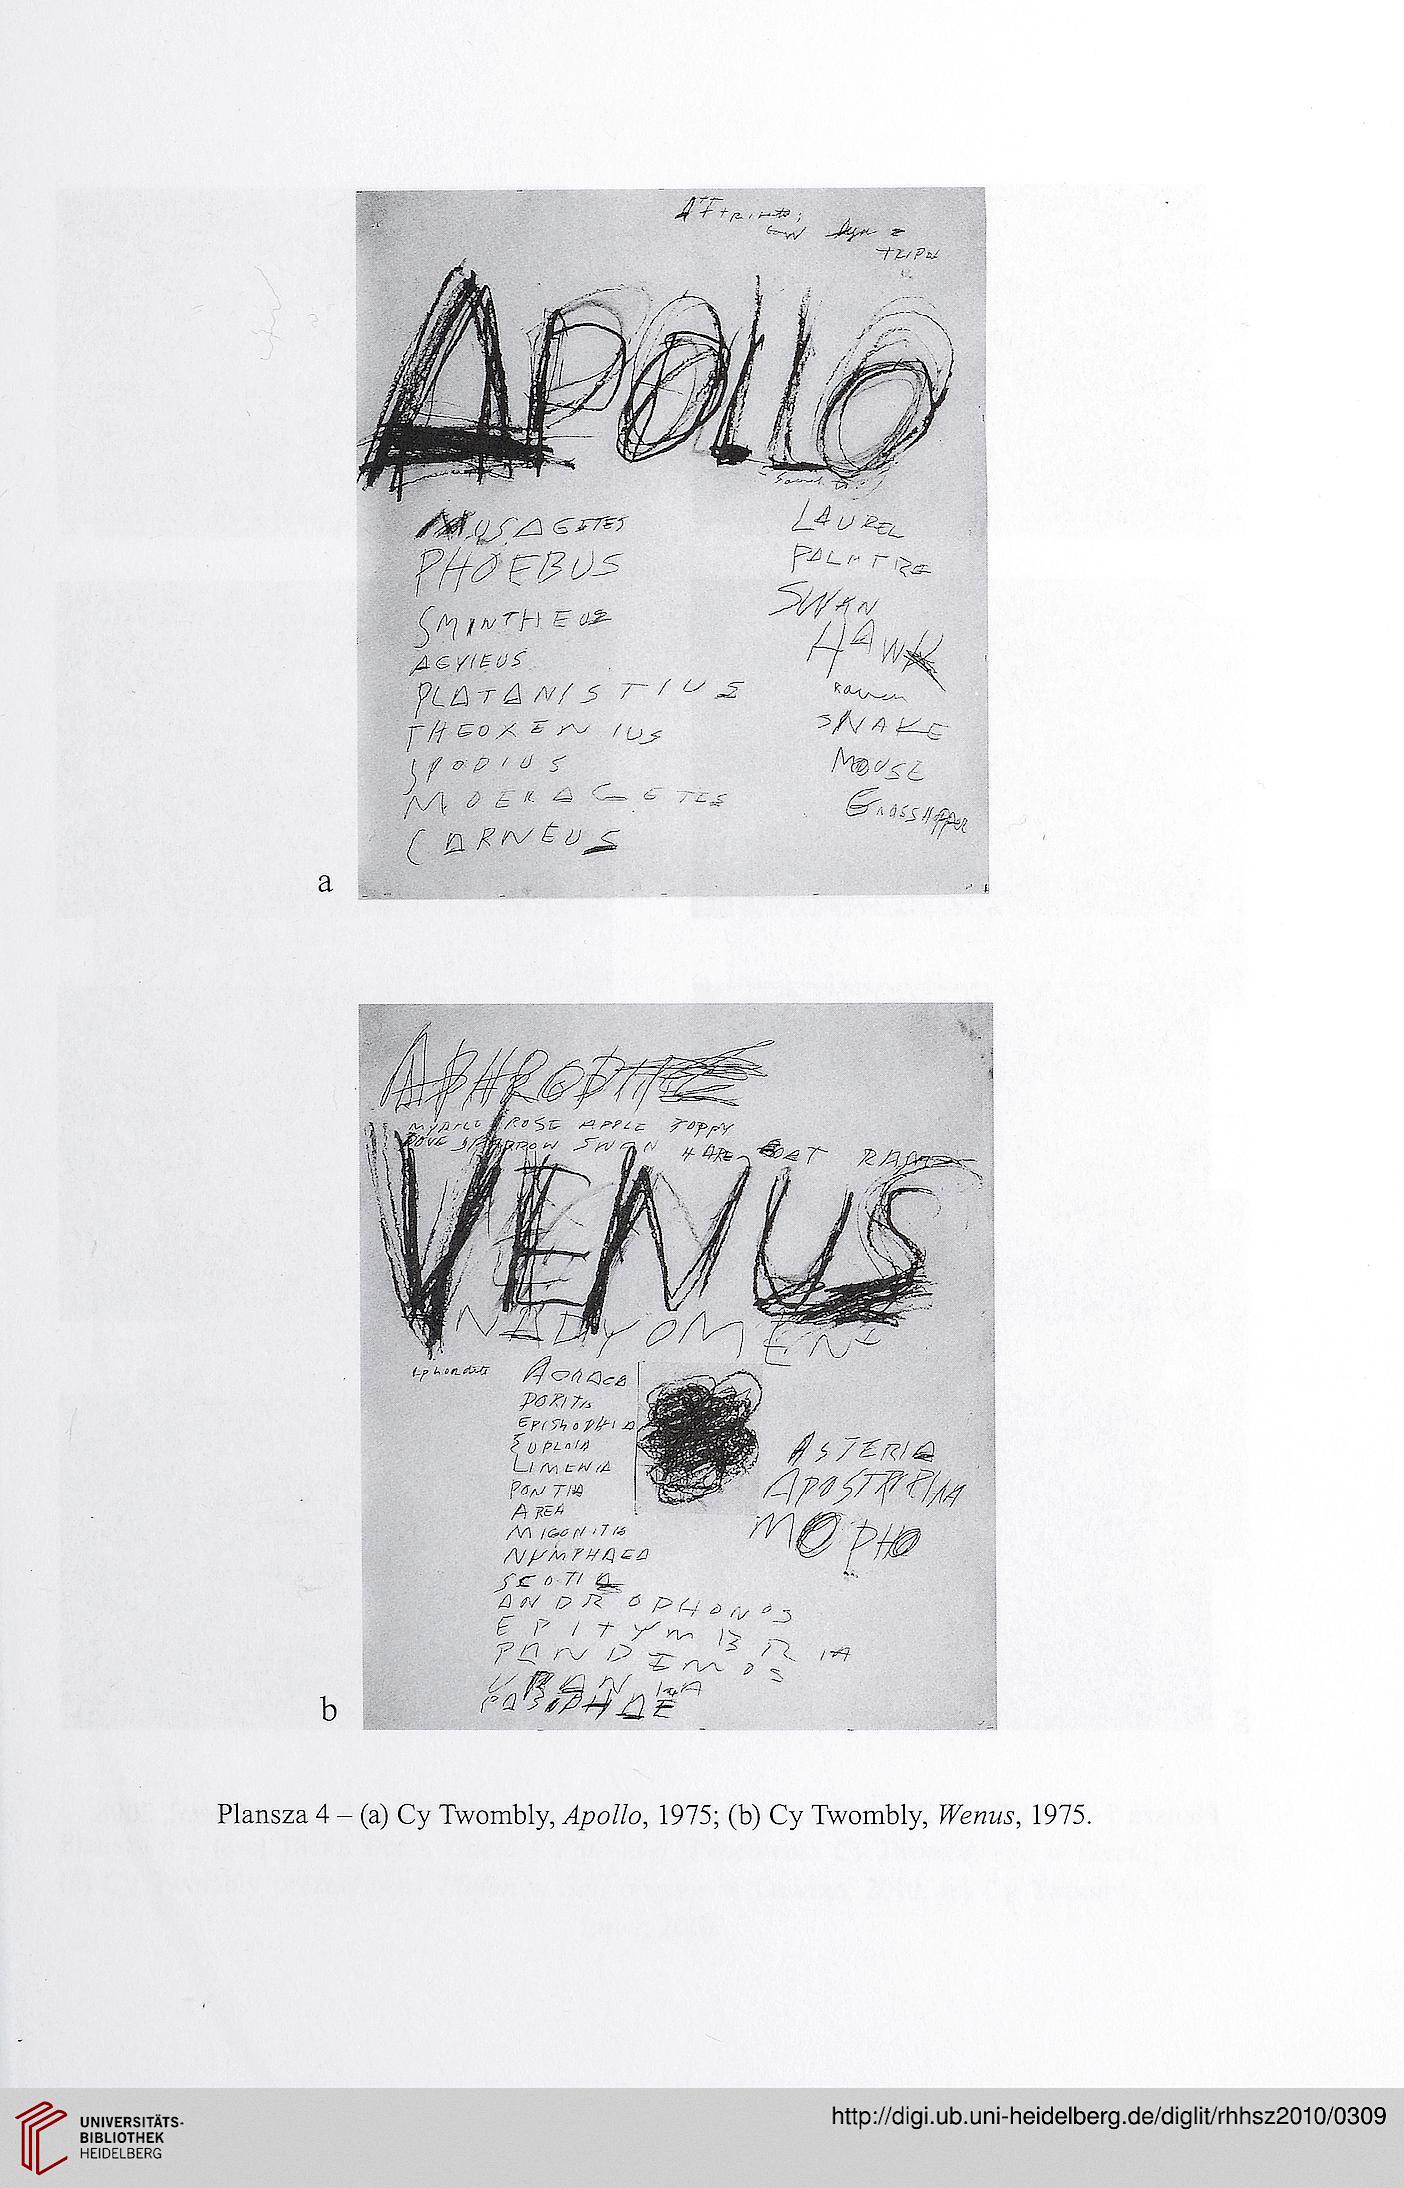 APOLLO
MUSAGETES
PHOEBUS
SMINTHEUS
AGYIEUS
PLATANISTIUS
THEOXENIUS
SPODIUS
MOERAGETES
CARNEUS
LAUREL
PALMTRE
SWAN
HAWK
Raven
SNAKE
MOUSE
GRASSHOPPER
a
APHRODITE
ROSE APPLE POPPY
DOVE SPARROW SWAN HARE GOAT RAM
VENUS
NADYOMENE
DORITIS
EUPLOIA
LIMENIA
PONTIA
AREA
MIGONITIS
NYMPHAEA
SCOTIA
ANDROPHONOS
EPITYMBRIA
PANDIMOS
URANIA
PASIPHAE
ASTERIA
MOPHO
b
Plansza 4 – (a) Cy Twombly, Apollo, 1975; (b) Cy Twombly, Wenus, 1975.
UNIVERSITÄTS-
BIBLIOTHEK
HEIDELBERG
http://digi.ub.uni-heidelberg.de/diglit/rhhsz2010/0309